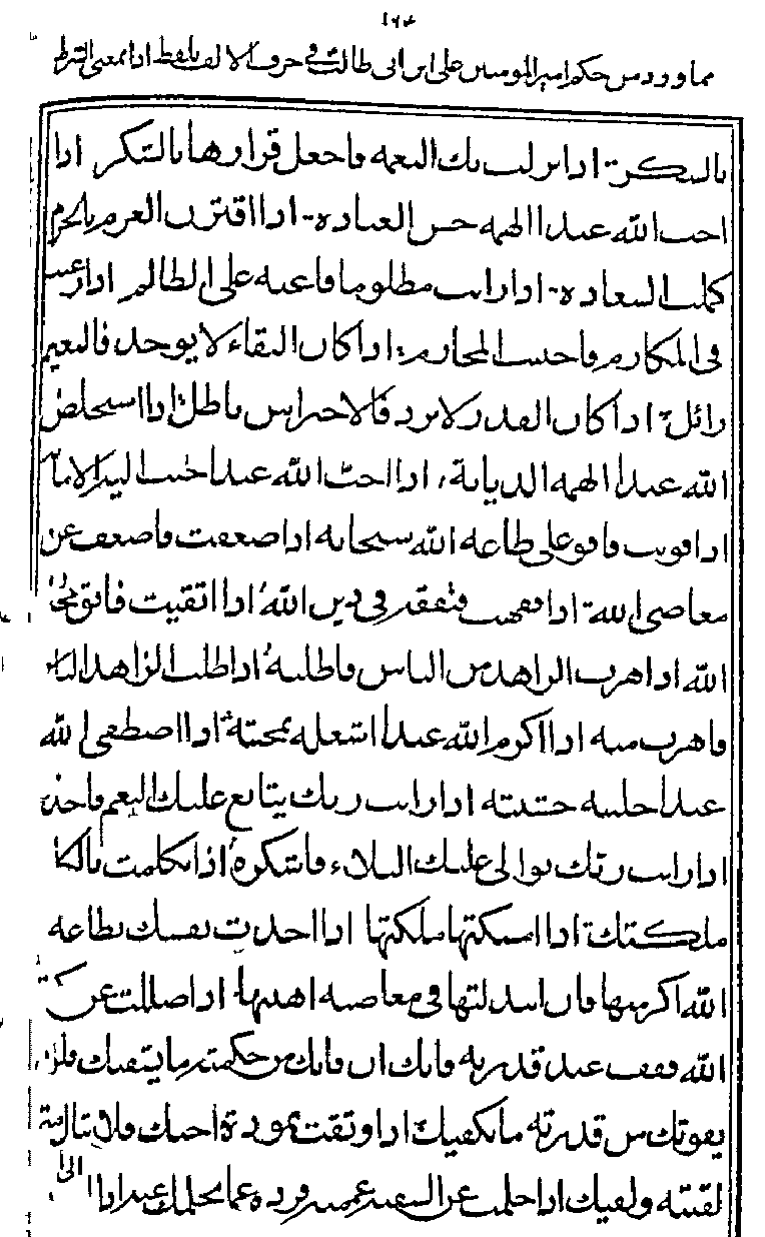 ١٨٣
مما ورد من حكم امير المومنين على ابن ابى طالب في حرف الالف بلفظ اذا بمعنى الشرط
بالشكر اذا نزلت بك النعمه فاجعل قراها بالشكر اذا
احب الله عبدا الهمه حسن العباده اذا اقترن العزم بالحزم
كملت السعاده اذا رايت مظلوما فاعنه على الظالم اذا رغبت
فى المكارم فاجتنب المحارم اذا كان البقاء لا يوجد فالنعيم
زائل اذا كان القدر لا يرد فالاحتراس باطل اذا استخلص
الله عبدا الهمه الديانة اذا احب الله عبدا حبب اليه الامانة
اذا قويت فاقو على طاعه الله سبحانه اذا ضعفت فاضعف عن
معاصى الله اذا تفقهت فتفقه فى دين الله اذا اتقيت فاتق محارم
الله اذا هرب الزاهد من الناس فاطلبه اذا طلب الزاهد الناس
فاهرب منه اذا اكرم الله عبدا اشغله بمحبته اذا اصطفى الله
عبدا جلببه خشيته اذا رايت ربك يتابع عليك النعم فاحذره
اذا رايت ربك يوالى عليك البلاء فاشكره اذا تكلمت بالكلمة
ملكتك اذا امسكتها ملكتها اذا اخذت نفسك بطاعه
الله اكرمتها وان ابتذلتها فى معاصيه اهنتها اذا ضللت عن حكمة
الله فقف عند قدرته فانك ان فاتك من حكمته ما يشفيك فلن
يفوتك من قدرته ما يكفيك اذا وثقت بمودة اخيك فلا تبال متى
لقيته ولقيك اذا حلمت عن السفيه غممته فزده غما بحلمك عنه اذا